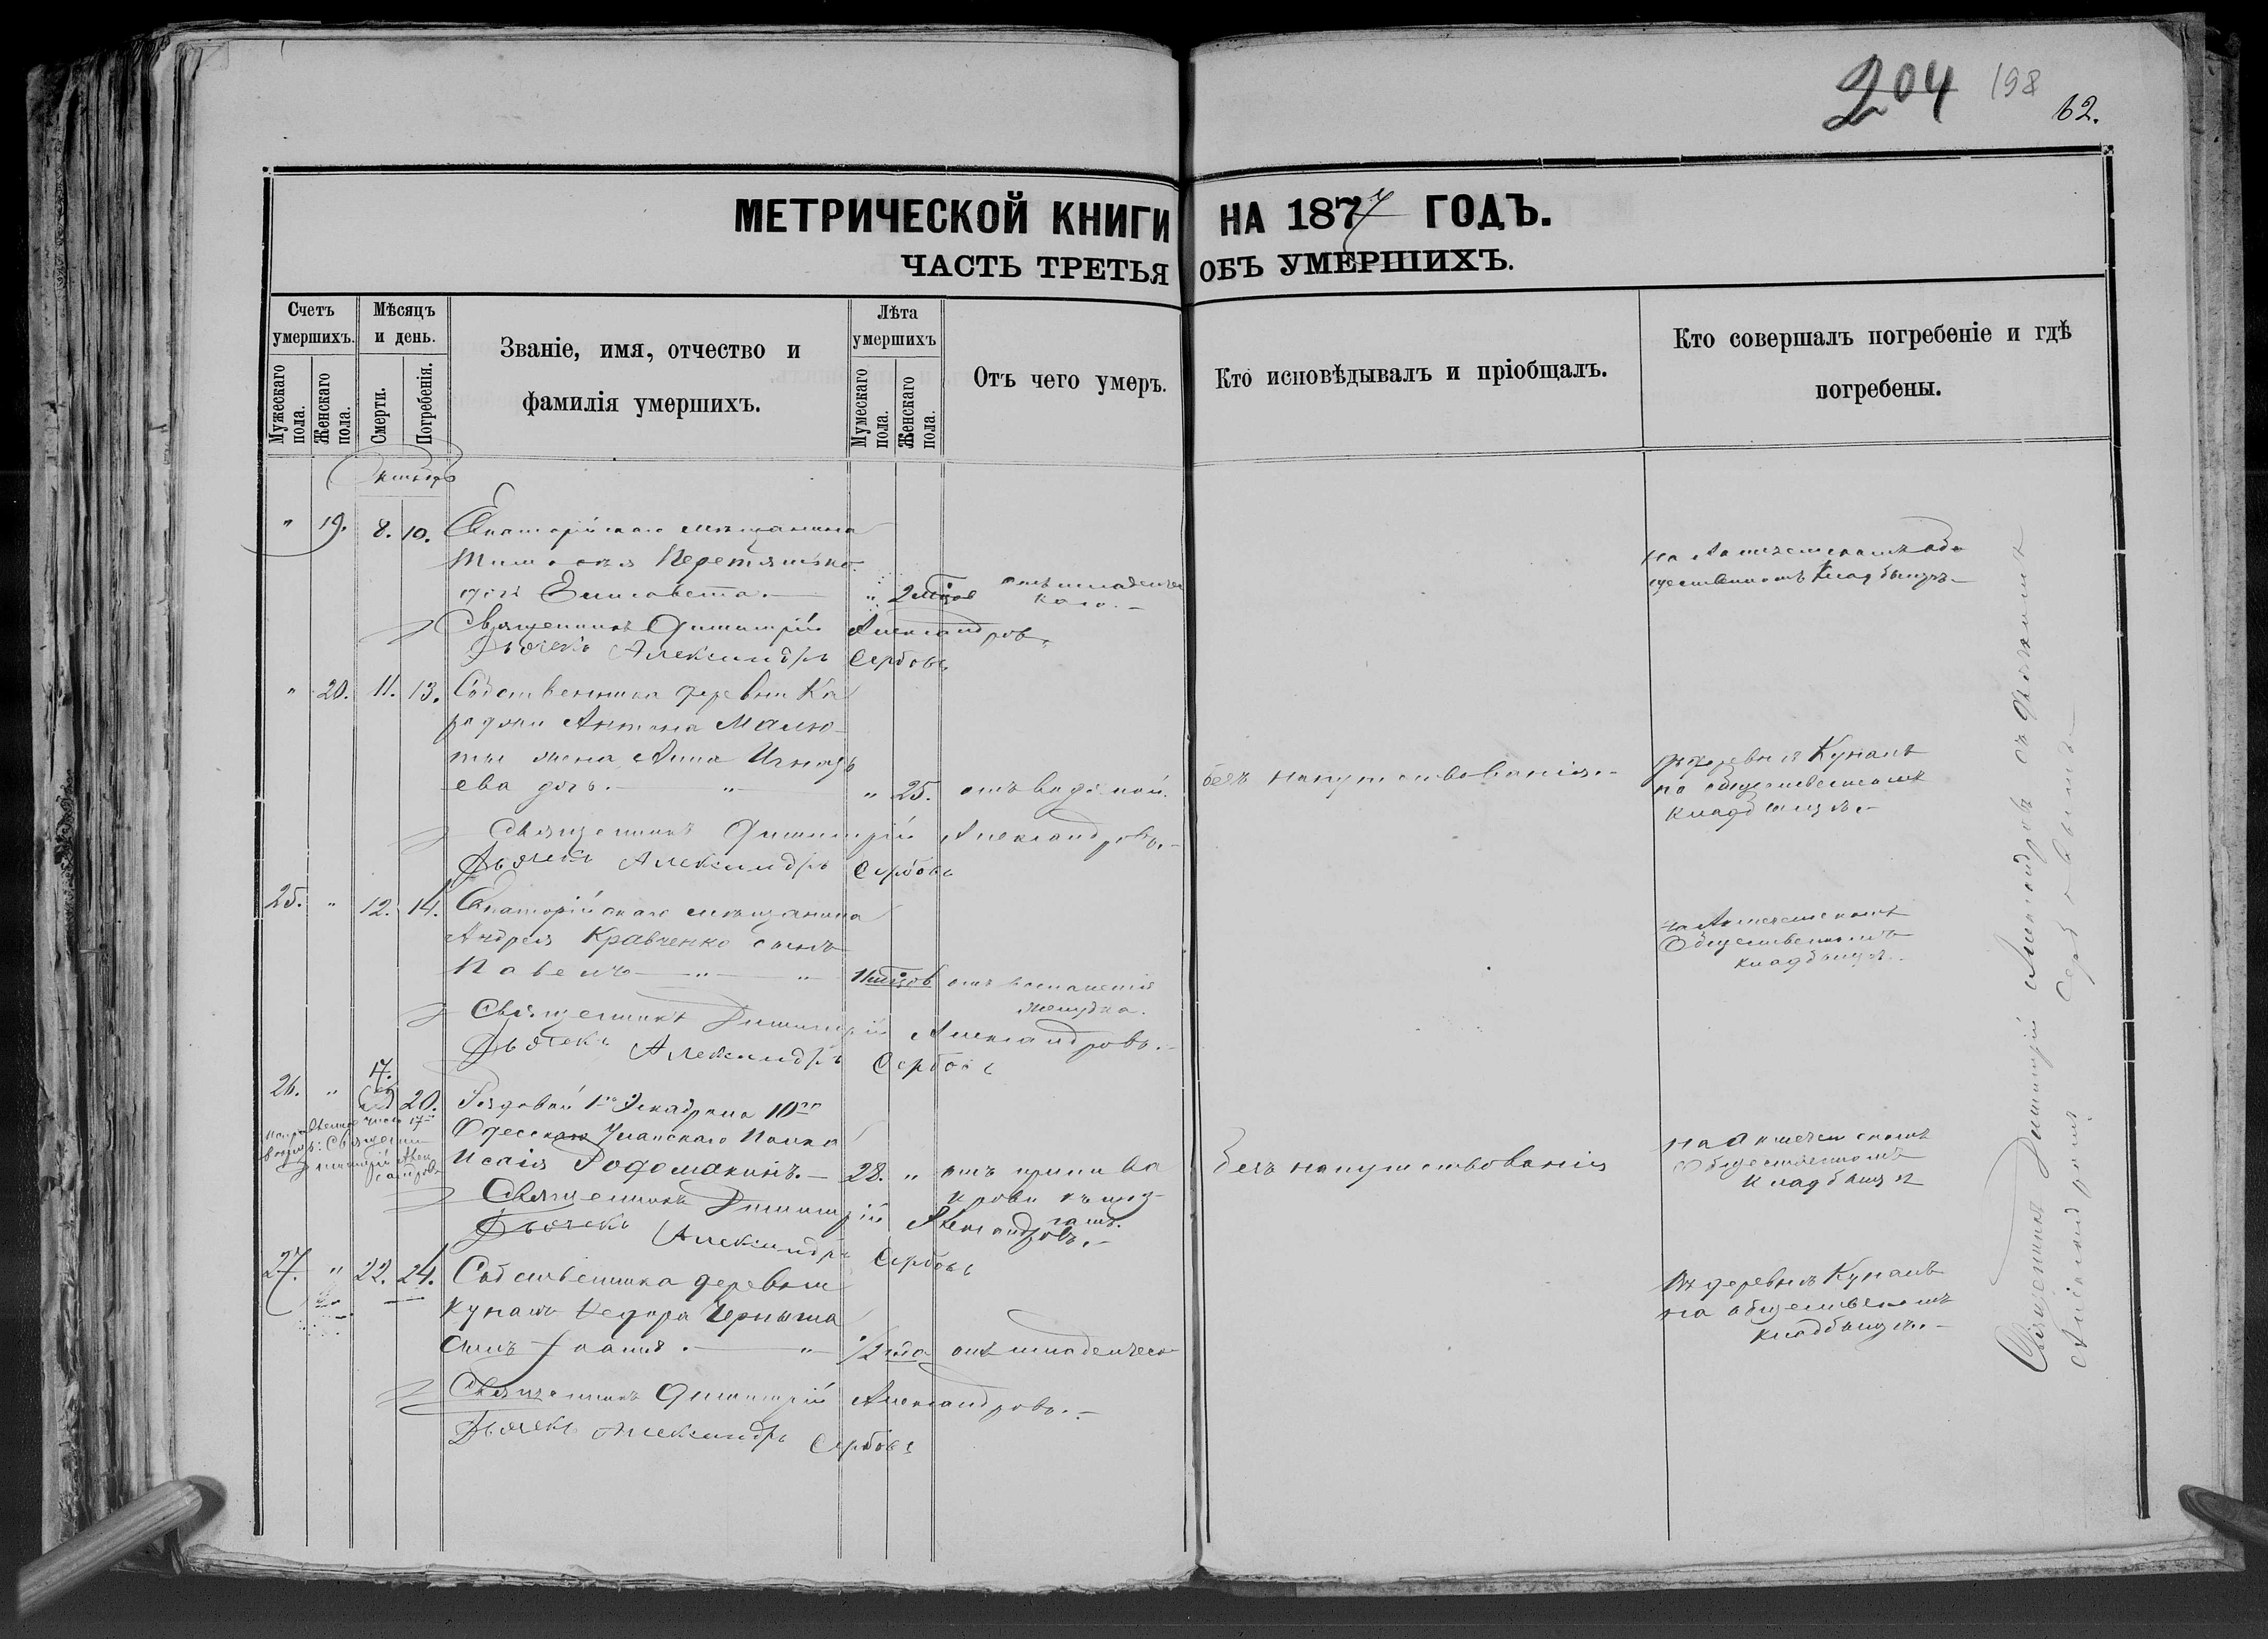 204 198
62.
МЕТРИЧЕСКОЙ КНИГИ НА 1877 ГОДЪ.
ЧАСТЬ ТРЕТЬЯ ОБЪ УМЕРШИХЪ.
Счетъ умершихъ.
Мужескаго пола.
Женскаго пола.
Мѣсяцъ и день.
Смерти.
Погребенія.
Званіе, имя, отчество и
фамилія умершихъ.
Лѣта умершихъ
Мужескаго пола.
Женскаго пола.
Отъ чего умеръ.
Кто исповѣдывалъ и пріобщалъ.
Кто совершалъ погребеніе и гдѣ
погребены.
Октябрь
" 19. 8. 10. Евпаторійскаго мѣщанина
на Акмечетскомъ обще
ственномъ кладбищѣ.
дочь Елисавета. " 2 мѣсцов отъ младенчес
каго.
Священникъ Димитрій Александровъ.
Дьячекъ Александръ Сербовъ
" 20. 11. 13. Собственника деревни Ка
раджи Антона Малю
ты жена Анна Игнатъ
ева дочь. " " 25. отъ водяной. безъ напутствованія.
въ деревнѣ Кунанъ
на общественномъ
кладбищѣ.
Священникъ Димитрій Александровъ.
Дьячекъ Александръ Сербовъ
25. " 12. 14. Евпаторійскаго мѣщанина
Андрея Кравченко сынъ
Павелъ " " 11 мѣсцов отъ воспаленія
желудка.
на Акмечетскомъ
Общественномъ
кладбищѣ.
Священникъ Димитрій Александровъ.
Дьячекъ Александръ Сербовъ
17.
26. " 20. Рядовой 1го Эскадрона 10го
Одесскаго Уланскаго Полка
Исаія Родомакинъ. 28. " отъ прилива
крови къ
безъ напутствованія
на Акмечетскомъ
Общественномъ
кладбищѣ
число 17
Священникъ
Димитрій Александровъ
Священникъ Димитрій Александровъ.
Дьячекъ Александръ Сербовъ
27. " 22. 24. Собственника деревни
Кунанъ Федора Черныша
сынъ " 1/2 года отъ младенческ
Въ деревнѣ Кунанъ
на общественномъ
кладбищѣ.
Священникъ Димитрій Александровъ.
Дьячекъ Александръ Сербовъ
Священникъ Димитрій Александровъ съ Дьячкомъ
Александромъ Сербовымъ